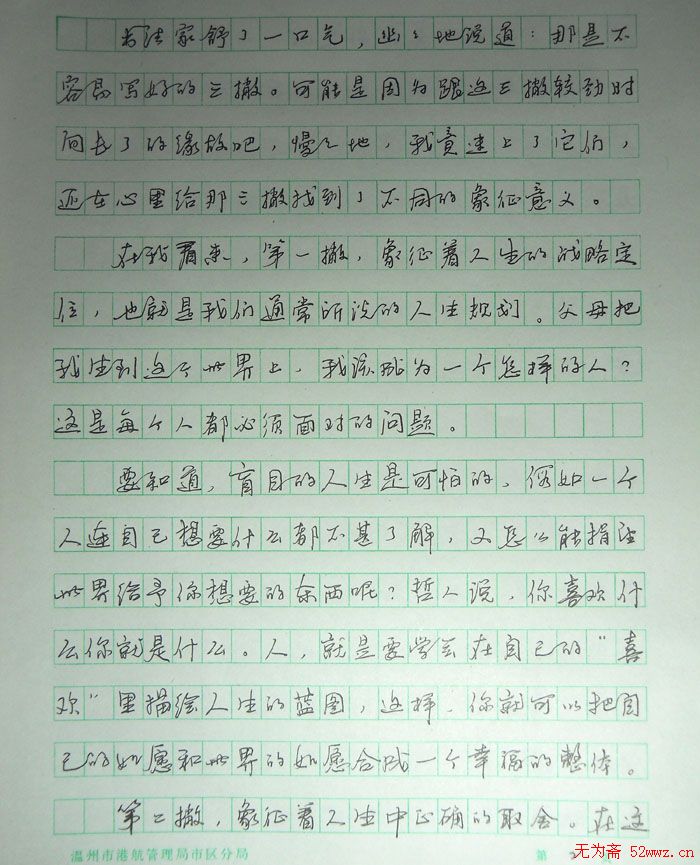 书法家舒了一口气，幽幽地说道：那是不
容易写好的三撇。可能是因为跟这三撇较劲时
间长了的缘故吧，慢慢地，我竟迷上了它们，
还在心里给那三撇找到了不同的象征意义。
在我看来，第一撇，象征着人生的战略定
位，也就是我们通常所说的人生规划。父母把
我生到这个世界上，我该成为一个怎样的人？
这是每个人都必须面对的问题。
要知道，盲目的人生是可怕的，假如一个
人连自己想要什么都不甚了解，又怎么能指望
世界给予你想要的东西呢？哲人说，你喜欢什
么你就是什么。人，就是要学会在自己的“喜
欢”里描绘人生的蓝图，这样，你就可以把自
己的如愿和世界的如愿合成一个幸福的整体。
第二撇，象征着人生中正确的取舍。在这
温州市港航管理局市区分局
第
无为斋 52wwz.cn